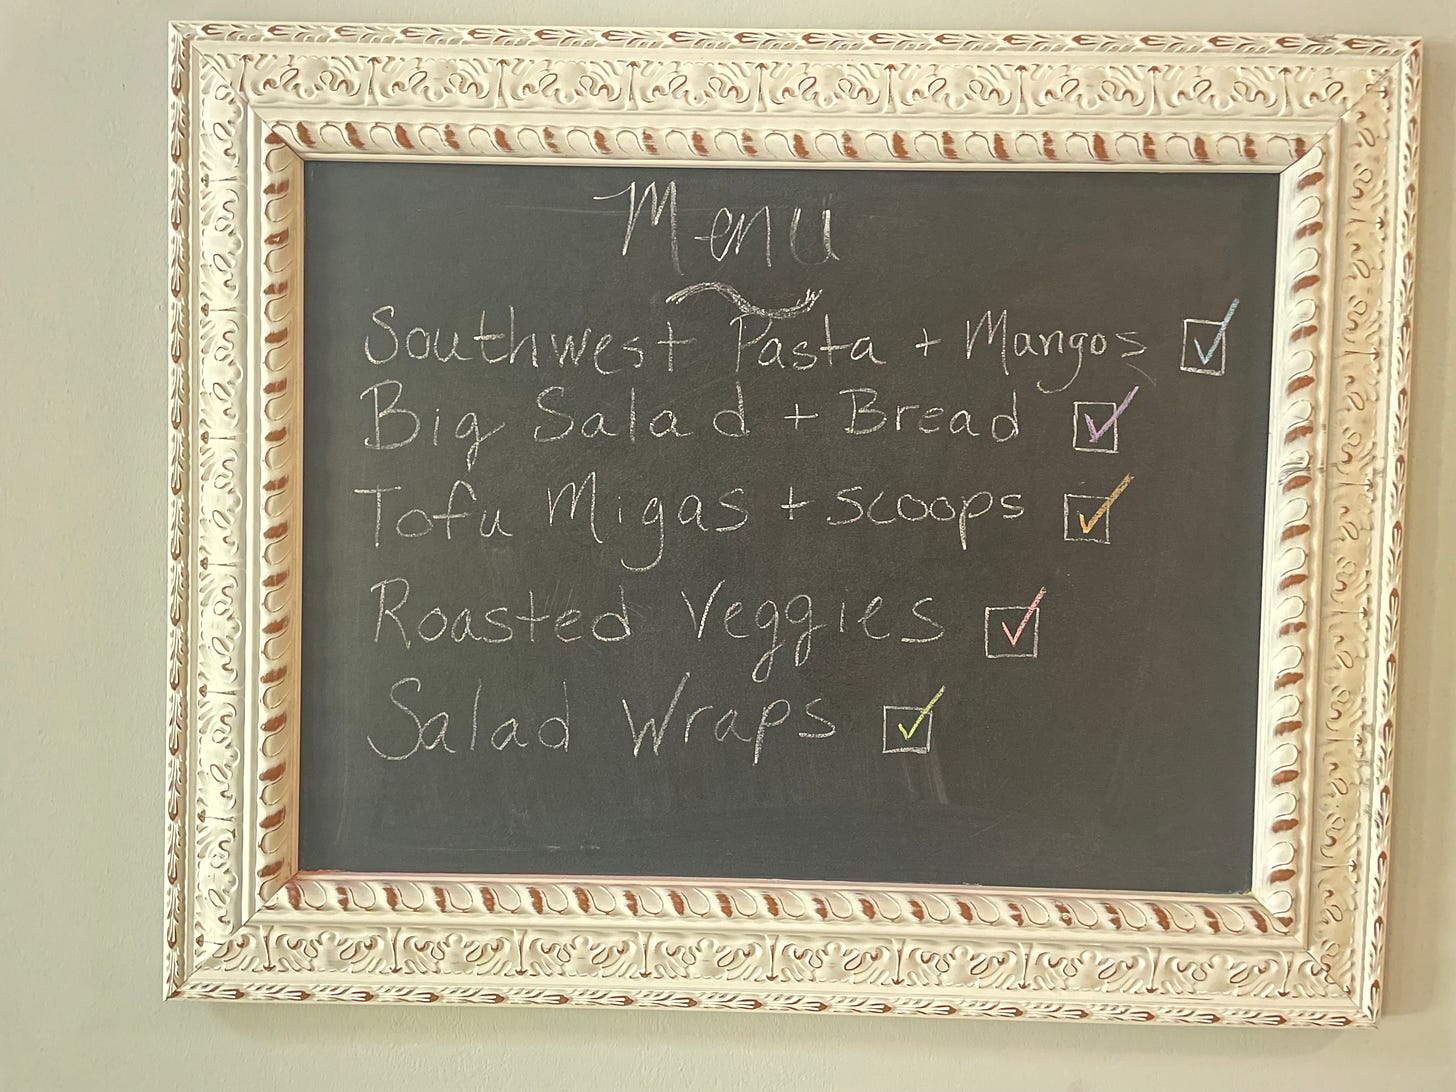 Menu
Southwest Pasta + Mangos
Big Salad + Bread
Tofu Migas + scoops
Roasted Veggies
Salad Wraps